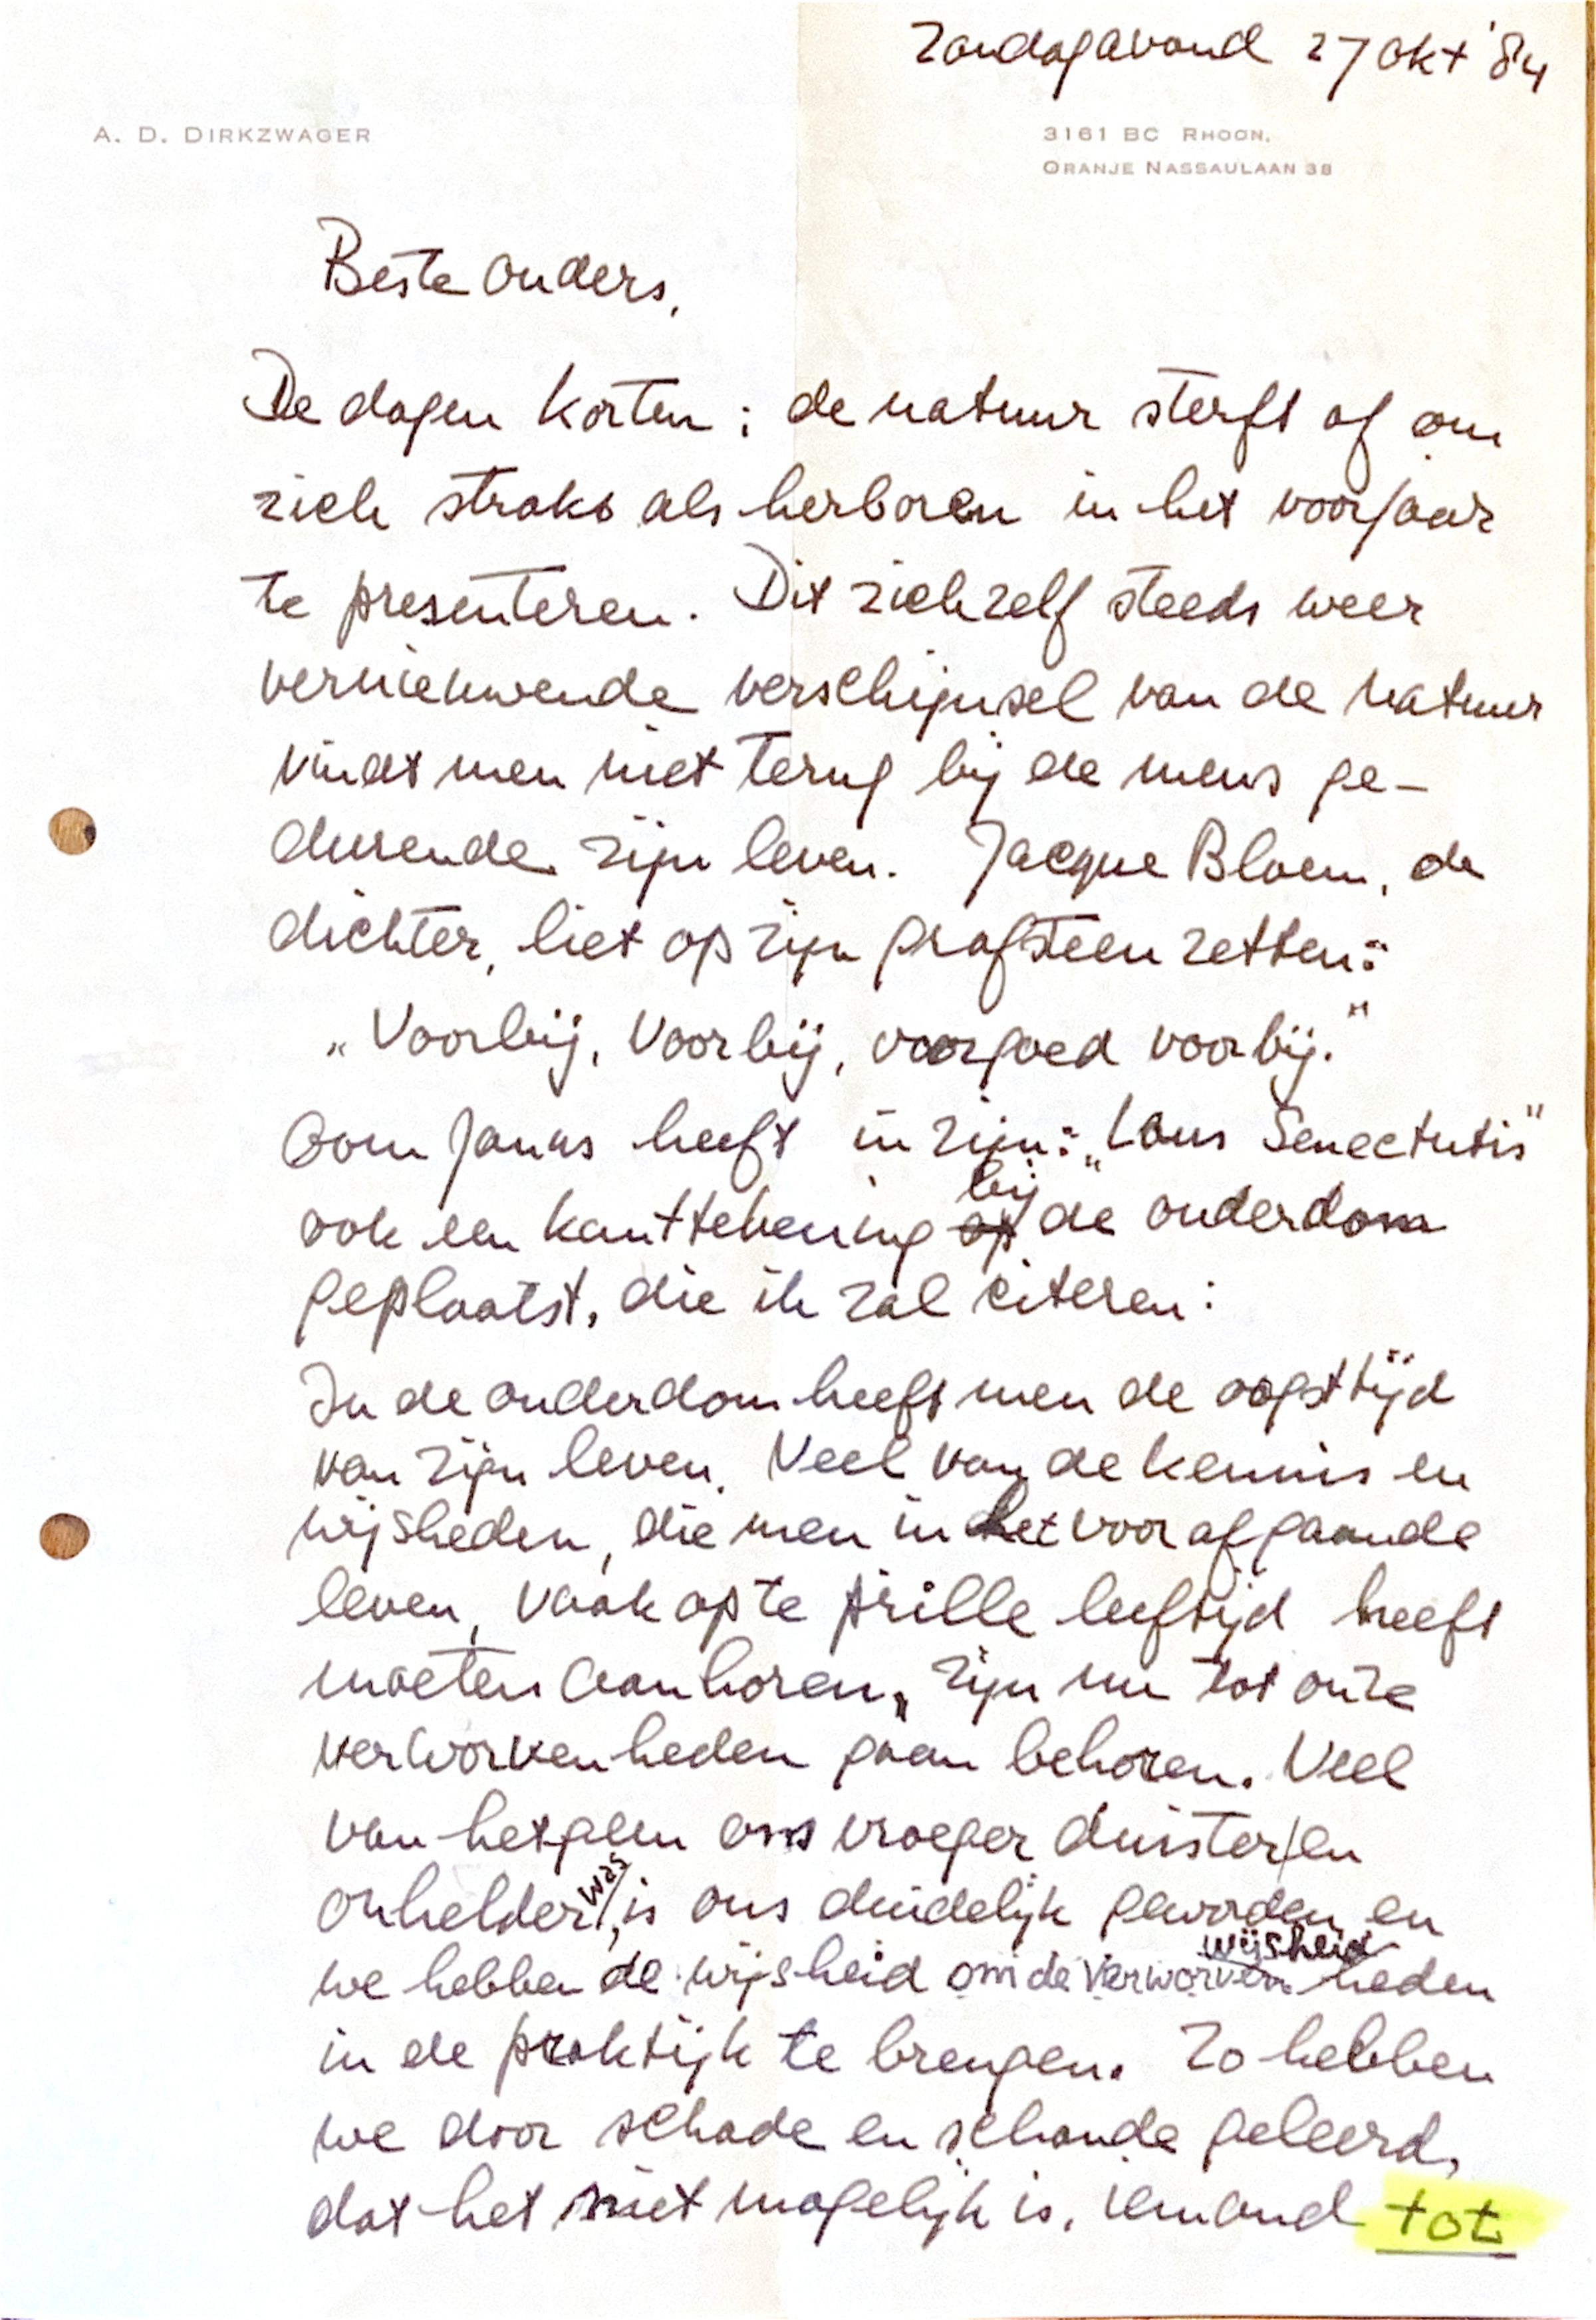 Zondagavond 27 okt '84
A. D. DIRKZWAGER
3161 BC RHOON.
ORANJE NASSAULAAN 38
Beste ouders,
De dagen korten; de natuur sterft af om
zich straks als herboren in het voorjaar
te presenteren. Dit zichzelf steeds weer
vernieuwende verschijnsel van de natuur
vindt men niet terug bij de mens ge-
durende zijn leven. Jacque Bloem, de
dichter, liet op zijn grafsteen zetten:
„Voorbij, Voorbij, voorgoed voorbij."
Oom Janus heeft in zijn: „Laus Senectutis"
bij
ook een kanttekening op de ouderdom
geplaatst, die ik zal citeren:
In de ouderdom heeft men de oogsttijd
van zijn leven. Veel van de kennis en
wijsheden, die men in het voorafgaande
leven, vaak op te prille leeftijd heeft
moeten aanhoren, zijn nu tot onze
verworvenheden gaan behoren. Veel
van hetgeen ons vroeger duister/en
onhelder was, is ons duidelijk geworden en
wijsheid
we hebben de wijsheid om de verworvenheden
in de praktijk te brengen. Zo hebben
we door schade en schande geleerd,
dat het niet mogelijk is, iemand tot